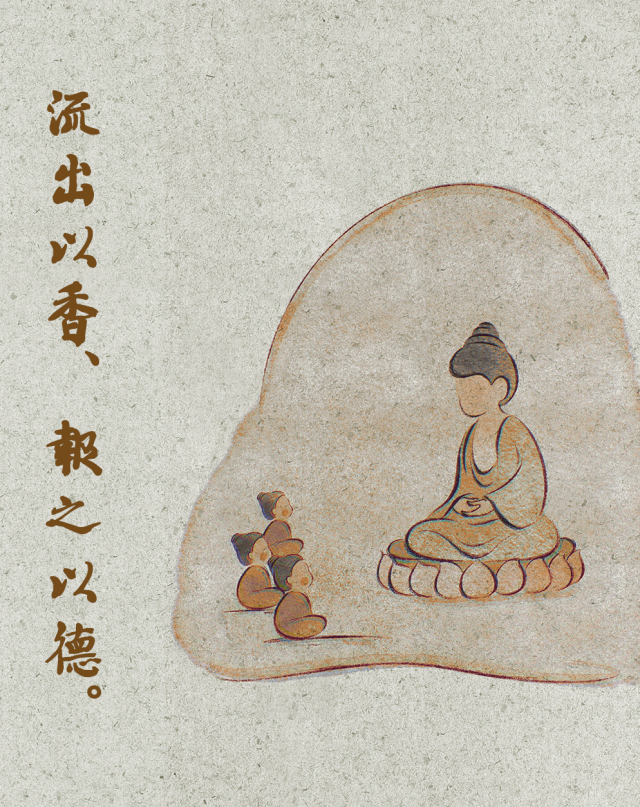 流出以香、報之以德。